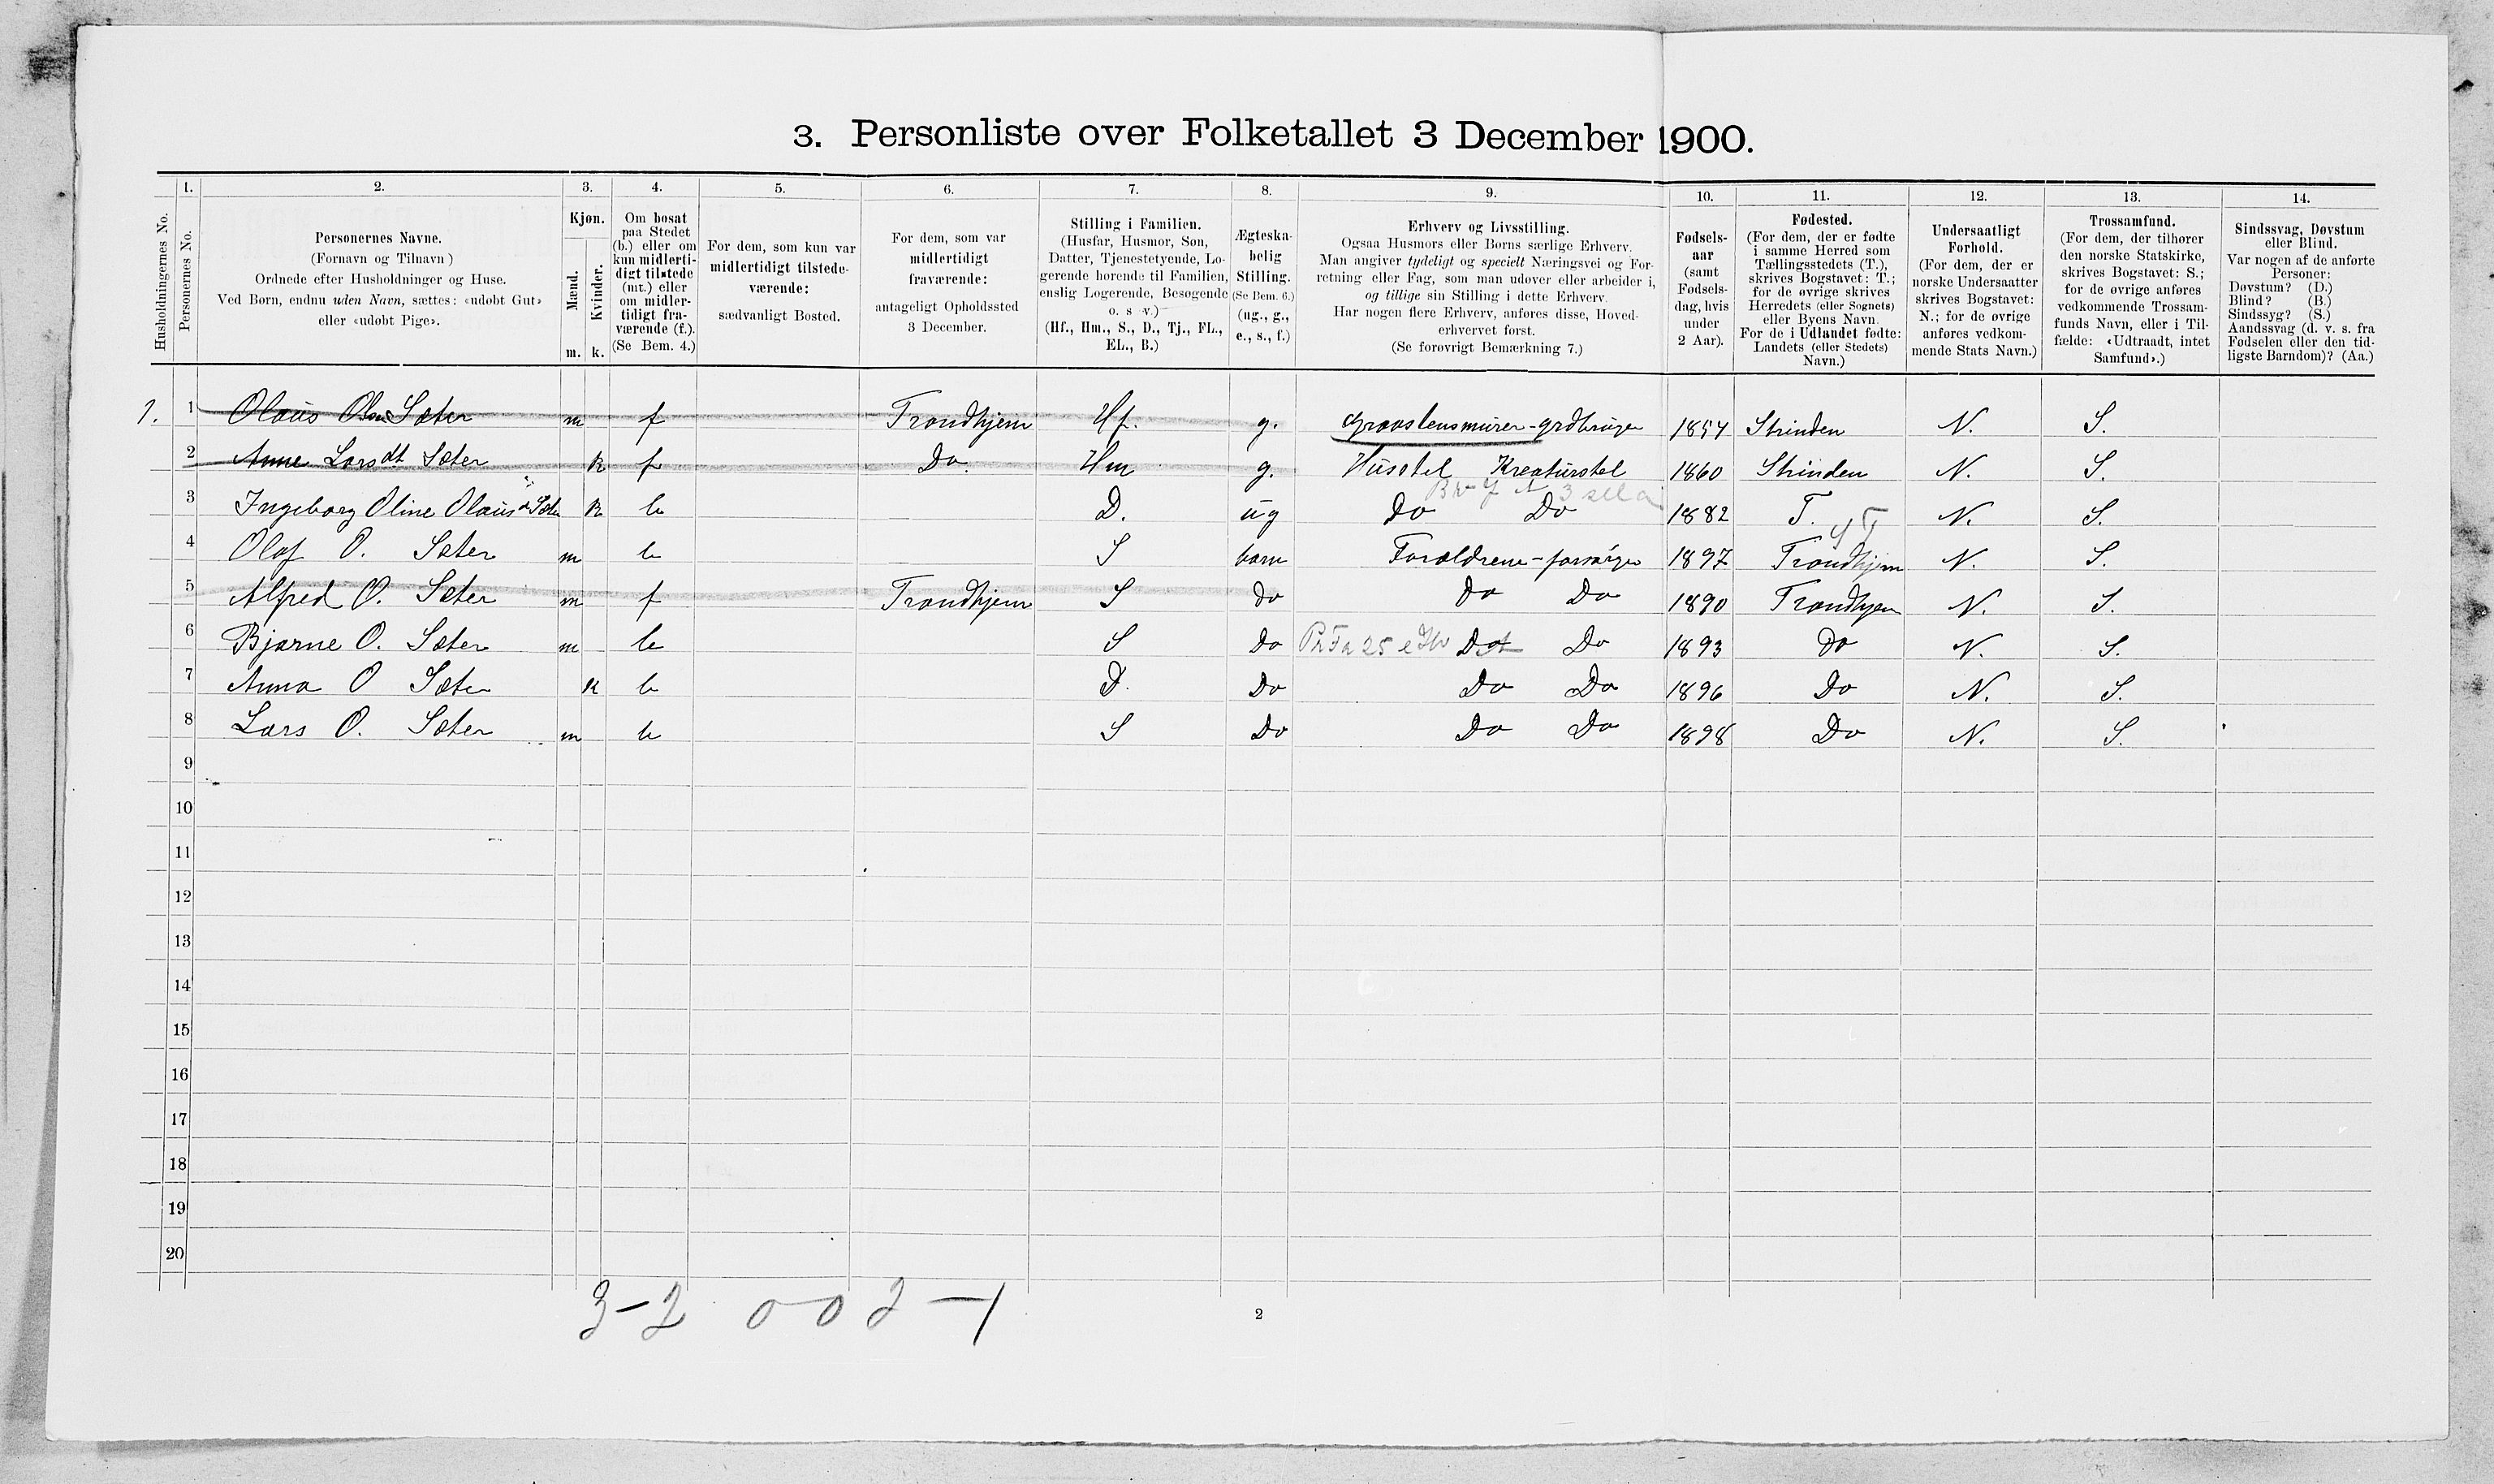 3. Personliste over Folketallet 3 December 1900.
Husholdningernes No.
1.
Personernes No.
2.
Personernes Navne.
(Fornavn og Tilnavn )
Ordnede efter Husholdninger og Huse.
Ved Børn, endnu uden Navn, sættes: «udøbt Gut»
eller «udøbt Pige».
3.
Kjøn.
Mænd.
Kvinder.
m. k.
4.
Om bosat
paa Stedet
(b.) eller om
kun midlerti-
digt tilstede
(mt.) eller
om midler-
tidigt fra-
værende (f.).
(Se Bem. 4.)
5.
For dem, som kun var
midlertidigt tilstede-
værende:
sædvanligt Bosted.
6.
For dem, som var
midlertidigt
fraværende:
antageligt Opholdssted
3 December.
7.
Stilling i Familien.
(Husfar, Husmor, Søn,
Datter, Tjenestetyende, Lo-
gerende hørende til Familien,
enslig Logerende, Besøgende
o. s v.)
(Hf., Hm., S., D., Tj., FL.,
EL., B.)
8.
Ægteska-
belig
Stilling.
(Se Bem. 6.)
(ug., g.,
e., s., f.)
9.
Erhverv og Livsstilling.
Ogsaa Husmors eller Børns særlige Erhverv.
Man angiver tydeligt og specielt Næringsvei og For-
retning eller Fag, som man udøver eller arbeider i,
og tillige sin Stilling i dette Erhverv.
Har nogen flere Erhverv, anføres disse, Hoved-
erhvervet først.
(Se forøvrigt Bemærkning 7.)
10.
Fødsels-
aar
(samt
Fødsels-
dag, hvis
under
2 Aar).
11.
Fødested.
(For dem, der er fødte
i samme Herred som
Tællingsstedets (T.),
skrives Bogstavet: T.;
for de øvrige skrives
Herredets (eller Sognets)
eller Byens Navn.
For de i Udlandet fødte:
Landets (eller Stedets)
Navn.)
12.
Undersaatligt
Forhold.
(For dem, der er
norske Undersaatter
skrives Bogstavet:
N.; for de øvrige
anføres vedkom-
mende Stats Navn.)
13.
Trossamfund.
(For dem, der tilhører
den norske Statskirke,
skrives Bogstavet: S.;
for de øvrige anføres
vedkommende Trossam-
funds Navn, eller i Til-
fælde: «Udtraadt, intet
Samfund».)
14.
Sindssvag, Døvstum
eller Blind.
Var nogen af de anførte
Personer:
Døvstum? (D.)
Blind? (B.)
Sindssyg? (S.)
Aandssvag (d. v. s. fra
Fødselen eller den tid-
ligste Barndom)? (Aa.)
1. 1 Olaus Olsen Sæter m f Trondhjem Hf. g. Graastensmurer - grdbruger 1854 Strinden N. S.
2 Anne Larsdt Sæter k f Do. Hm g. Husstel Kreaturstel 1860 Strinden N. S.
3 Ingeborg Oline Olausd. Sæter k b D. ug Do Do 1882 T. N. S.
4 Olaf O. Sæter m b S barn Forældrene - forsørger 1897 Trondhjem N. S.
5 Alfred O. Sæter m f Trondhjem S do do Do 1890 Trondhjem N. S.
6 Bjarne O. Sæter m b S Do Do 1893 Do N. S.
7 Anna O Sæter k b D. Do Do Do 1896 Do N. S.
8 Lars O. Sæter m b S Do Do Do 1898 Do N. S.
9
10
11
12
13
14
15
16
17
18
19
20
3-2 0 0 2 - 1
2